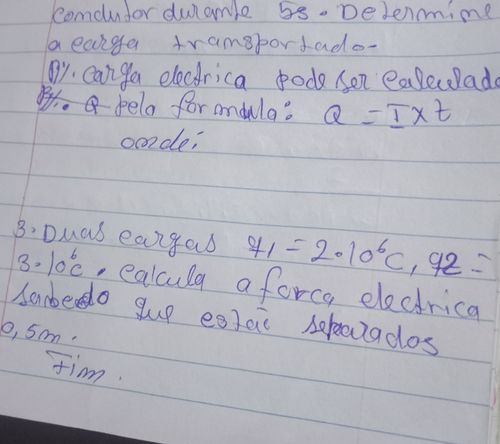 condutor durante 5s. Determine
a carga transportado-
R/. carga electrica pode ser calculado
R/. Q pela formula: Q = I x t
onde:
3. Duas cargas q1 = 2.10⁶C, q2 =
3.10⁶c. calcula a força electrica
sabendo que estão separados
0,5m.
Fim.